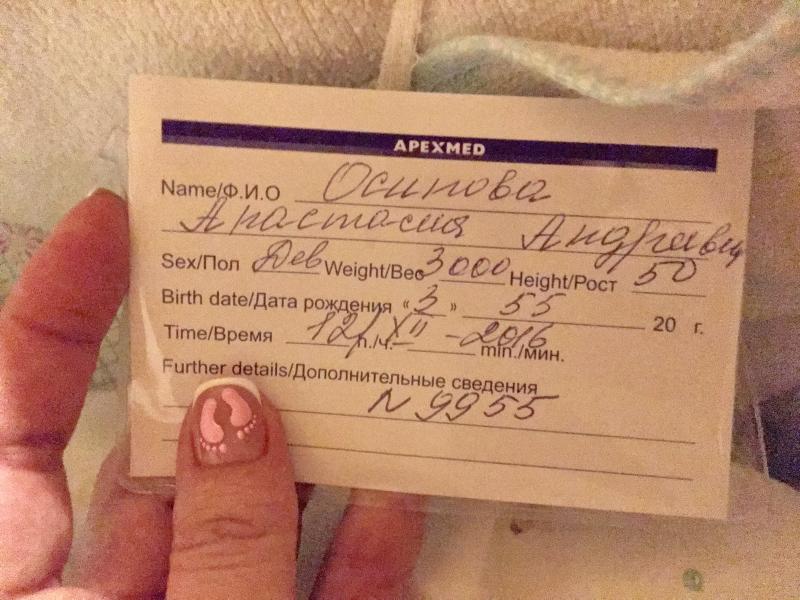 APEXMED
Name/Ф.И.О Осипова
Анастасия Андреевн
Sex/Пол Дев Weight/Вес 3000 Height/Рост 50
Birth date/Дата рождения « 3 » 55 20 г.
Time/Время 12/XII-2016 h./ч. min./мин.
Further details/Дополнительные сведения
N 9955